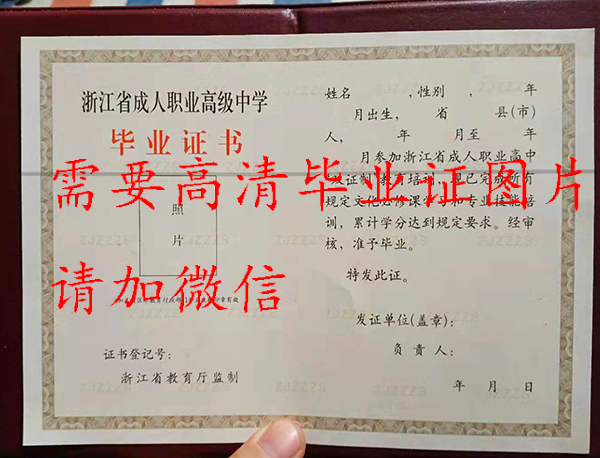 浙江省成人职业高级中学
毕业证书
照
片
证书登记号：
浙江省教育厅监制
姓名 ，性别 ， 年
月出生， 省 县（市）
人， 年 月至 年
月参加浙江省成人职业高中
双证制教育培训，现已完成所有
规定文化必修课学习和专业技能培
训，累计学分达到规定要求。经审
核，准予毕业。
特发此证。
发证单位（盖章）：
负责人：
年 月 日
需要高清毕业证图片
请加微信
ZJZZZS